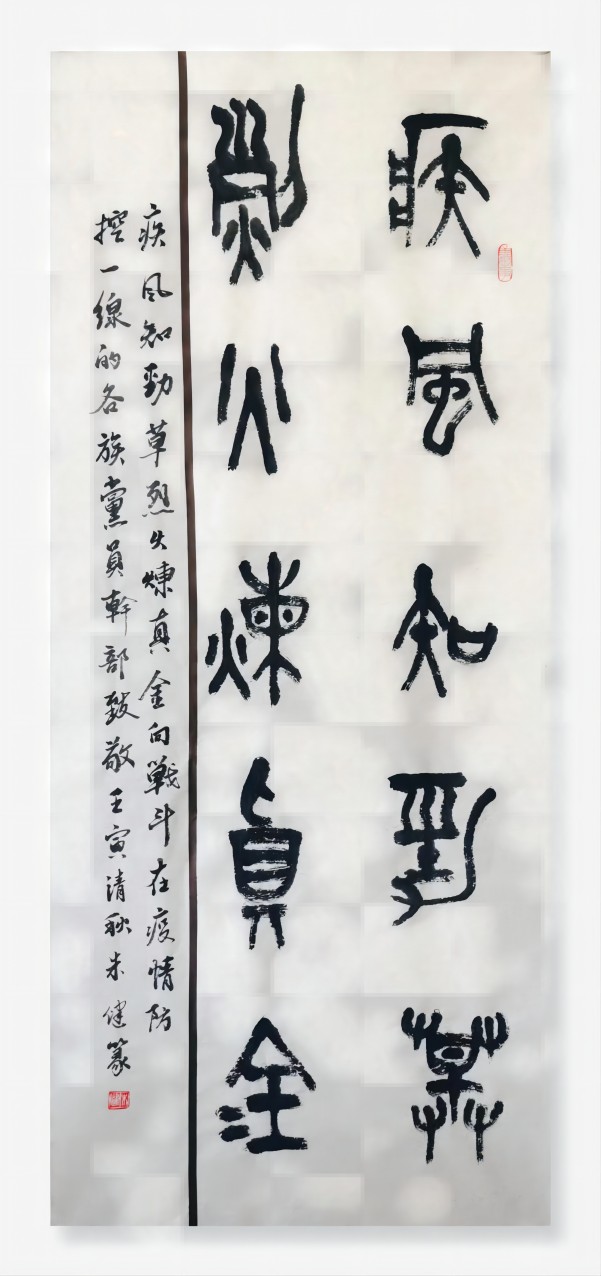 疾風知勁草
烈火煉真金
疾風知勁草烈火煉真金向戰斗在疫情防
控一線的各族黨員幹部致敬壬寅清秋朱健篆